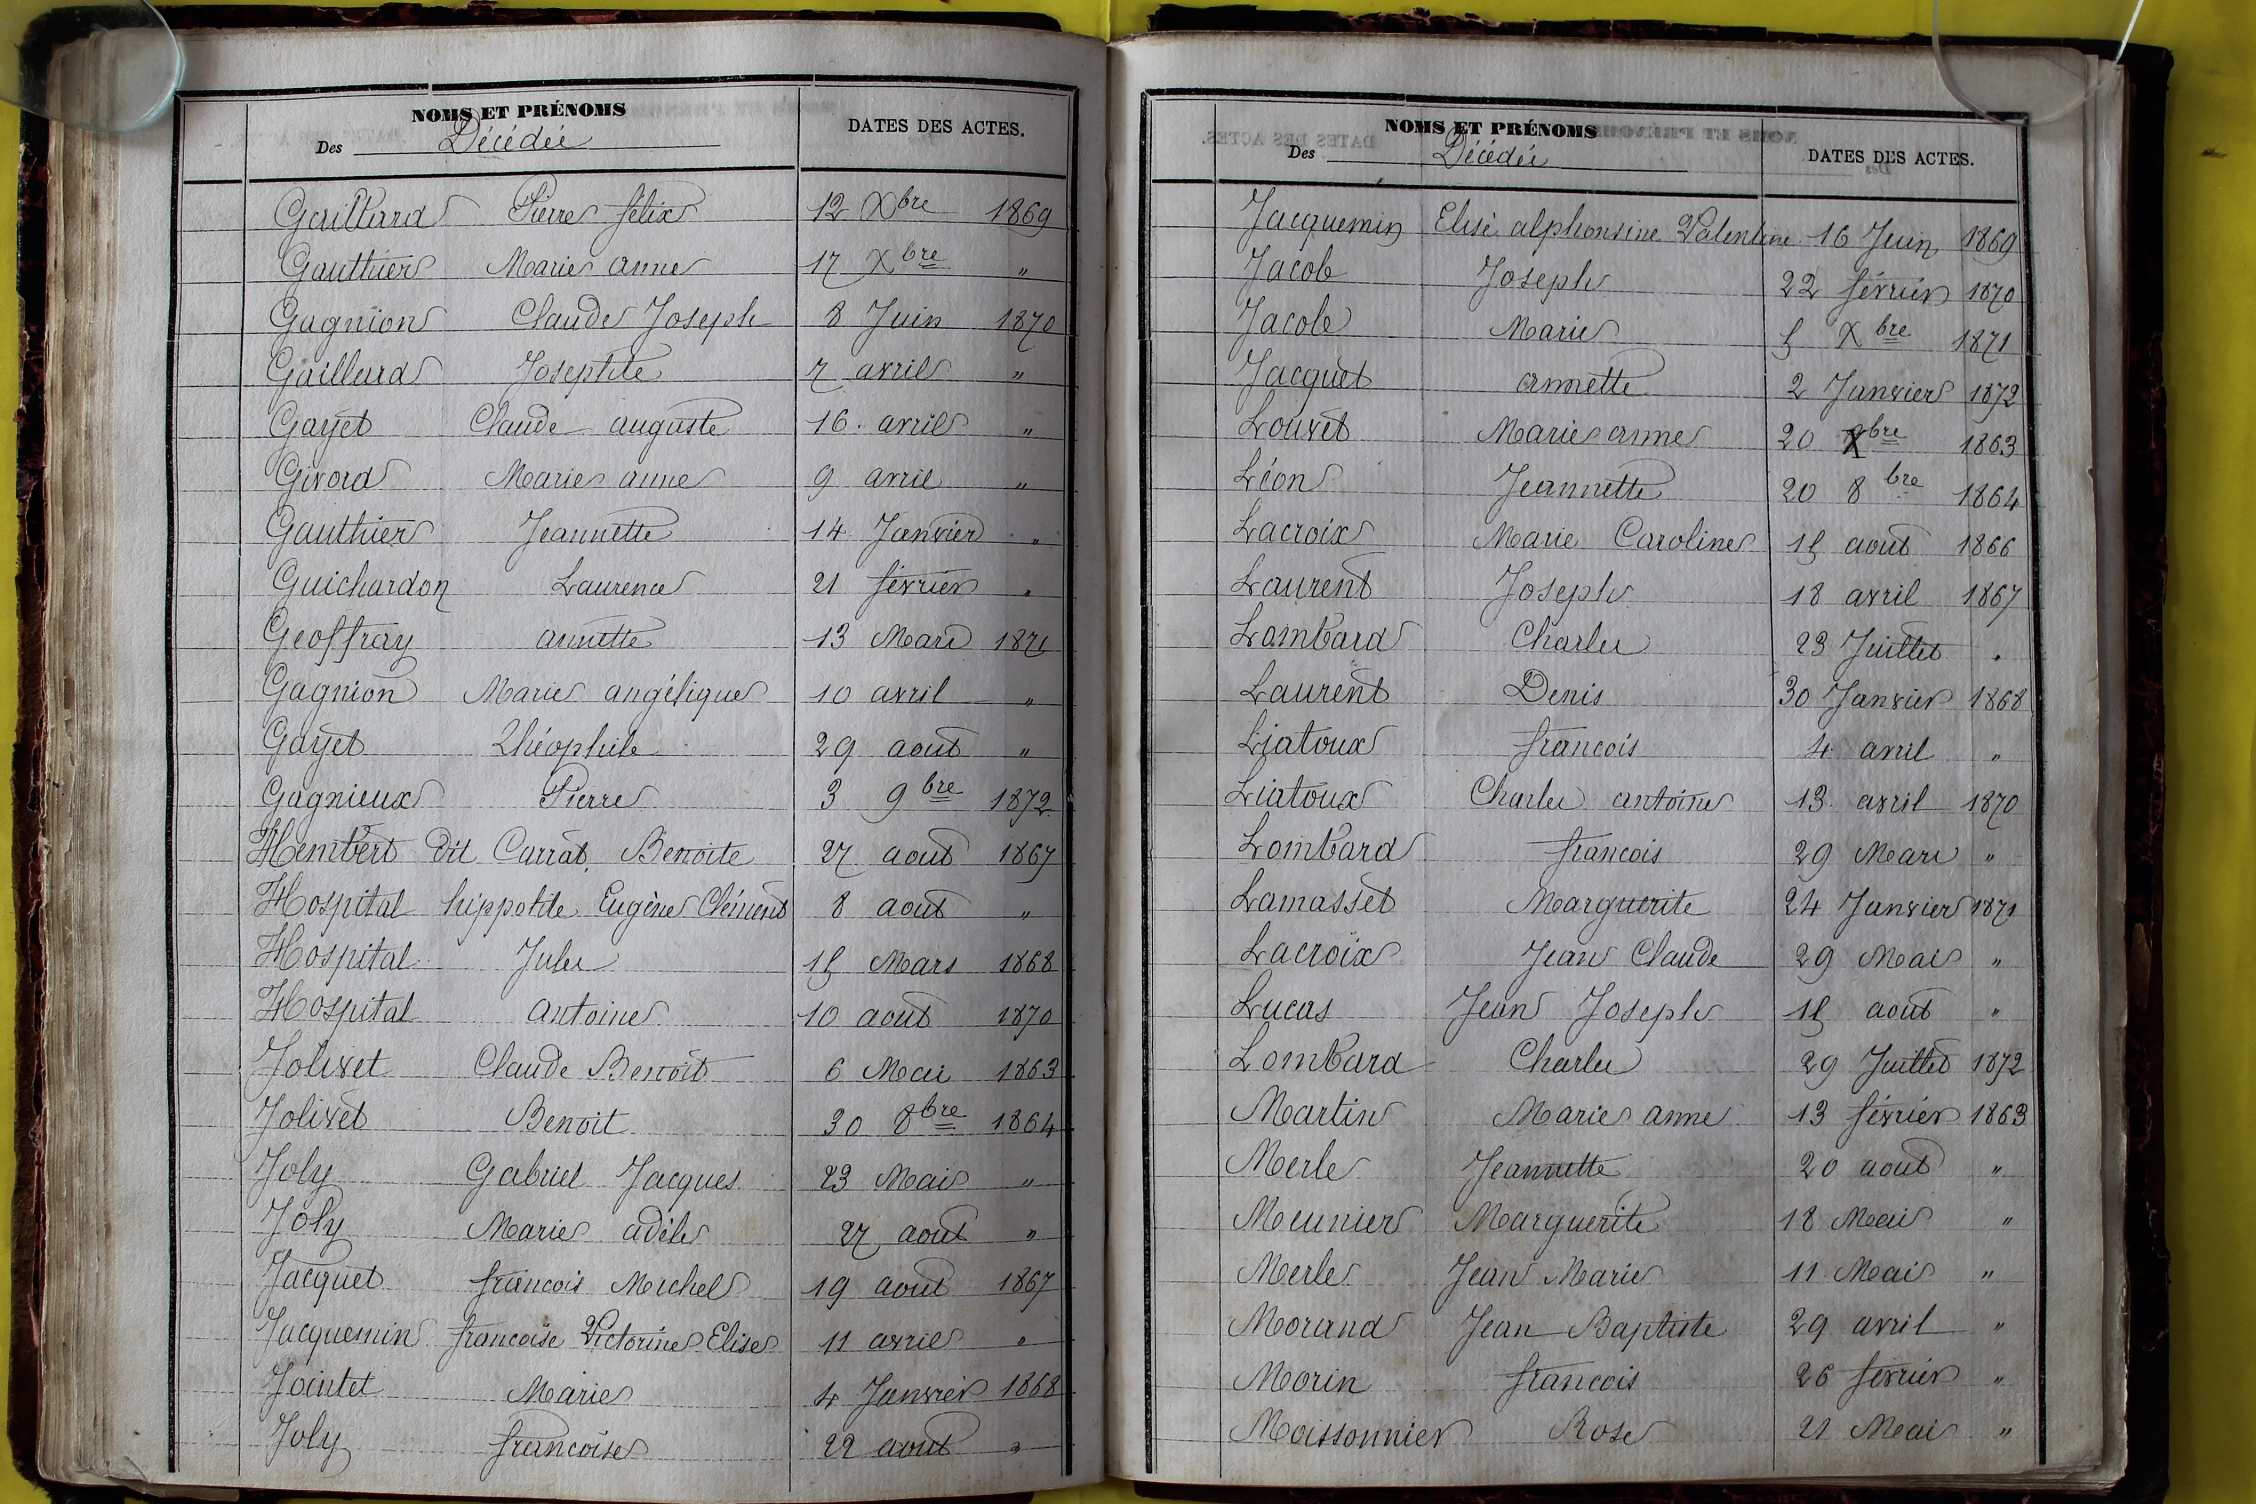 NOMS ET PRÉNOMS
Des Décédés
DATES DES ACTES.
Gaillard Pierre félix 12 Xbre 1869
Gauthier Marie anne 17 Xbre "
Gagnion Claude Joseph 8 Juin 1870
Gaillard Josephte 7 avril "
Gayet Claude auguste 16. avril "
Givord Marie anne 9 avril "
Gauthier Jeannette 14 Janvier "
Guichardon Laurence 21 février "
Geoffray annette 13 Mars 1871
Gagnion Marie angélique 10 avril "
Gayet Théophile 29 aout "
Gagnieux Pierre 3 9bre 1872
Hembert dit Carrat Benoite 27 aout 1867
Hospital hippolite Eugène Clément 8 aout "
Hospital Jules 15 Mars 1868
Hospital antoine 10 aout 1870
Jolivet Claude Benoit 6 Mai 1863
Jolivet Benoit 30 8bre 1864
Joly Gabriel Jacques 23 Mai "
Joly Marie adèle 27 aout "
Jacquet francois Michel 19 aout 1867
Jacquemin francoise Victorine Elise 11 avril "
Jointet Marie 4 Janvier 1868
Joly francoise 22 aout "
NOMS ET PRÉNOMS
Des Décédés
DATES DES ACTES.
Jacquemin Elise alphonsine Valentine 16 Juin 1869
Jacob Joseph 22 février 1870
Jacob Marie 5 Xbre 1871
Jacquet annette 2 Janvier 1872
Louvet Marie anne 20 Xbre 1863
Léon Jeannette 20 8bre 1864
Lacroix Marie Caroline 15 aout 1866
Laurent Joseph 18 avril 1867
Lombard Charles 23 Juillet "
Laurent Denis 30 Janvier 1868
Liatoux francois 4 avril "
Liatoux Charles antoine 13 avril 1870
Lombard francois 29 Mars "
Lamasset Marguerite 24 Janvier 1871
Lacroix Jean Claude 29 Mai "
Lucas Jean Joseph 15 aout "
Lombard Charles 29 Juillet 1872
Martin Marie anne 13 février 1863
Merle Jeannette 20 aout "
Meunier Marguerite 18 Mai "
Merle Jean Marie 11 Mai "
Morand Jean Baptiste 29 avril "
Morin francois 26 février "
Moissonnier Rose 21 Mai "